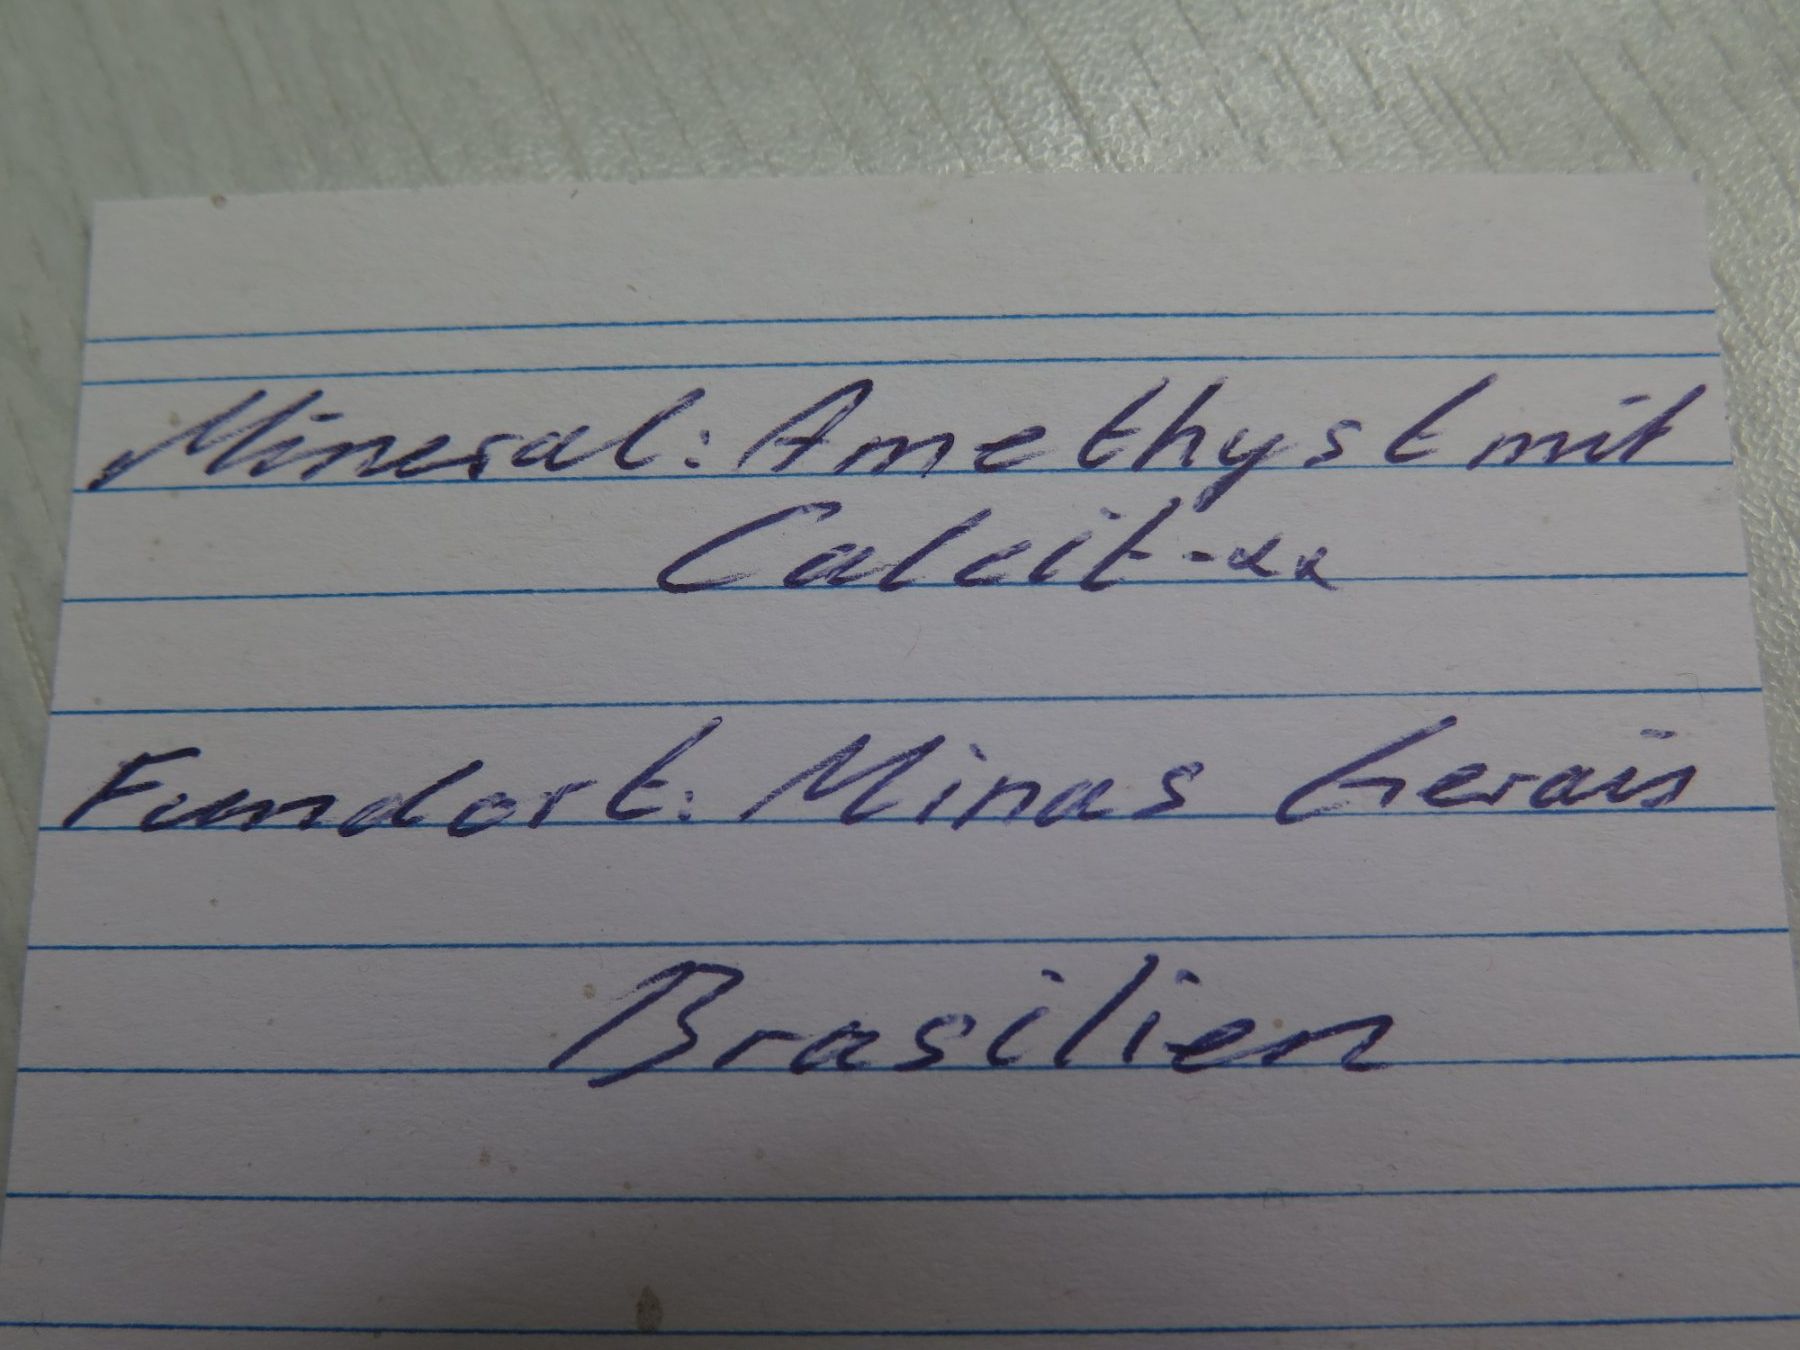 Mineral: Amethyst mit
Calcit-xx
Fundort: Minas Gerais
Brasilien